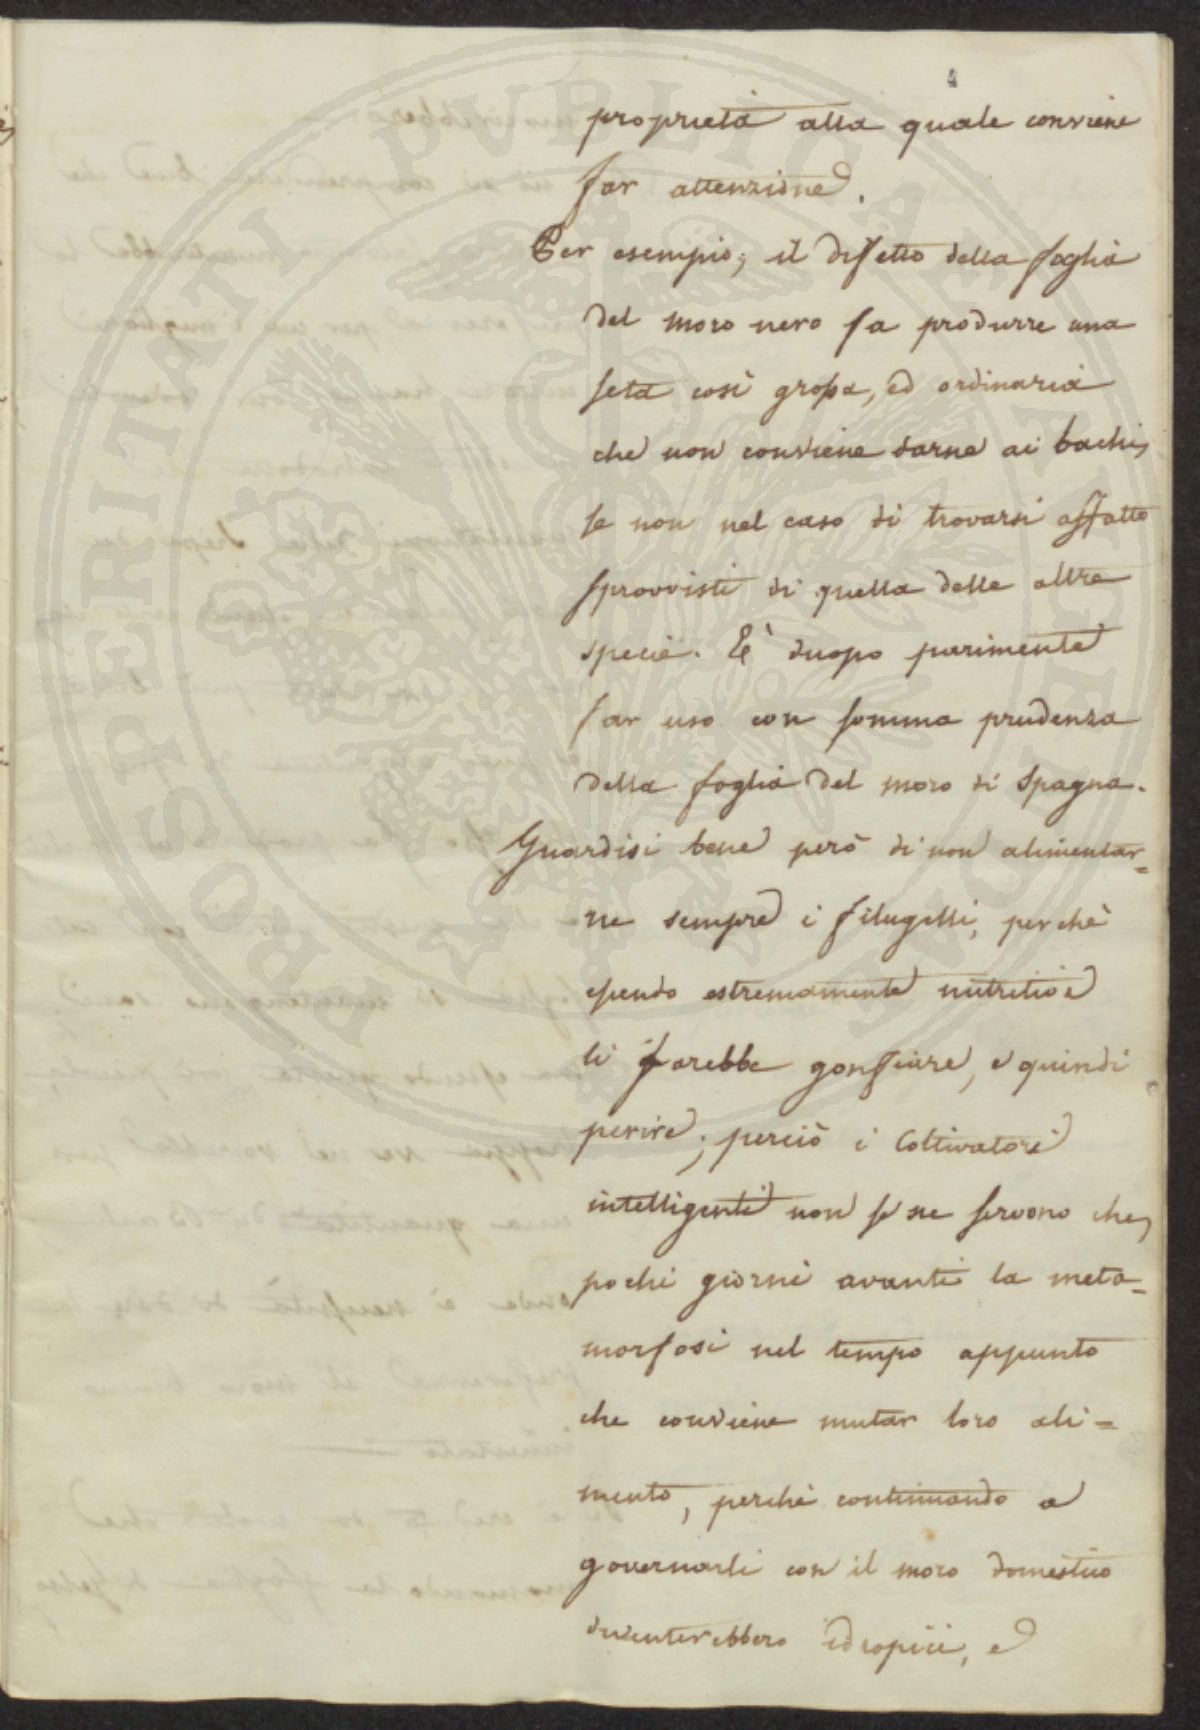 4
proprietà alla quale conviene
far attenzione.
Per esempio, il difetto della foglia
del moro nero fa produrre una
seta così grossa, ed ordinaria
che non conviene darne ai bachi,
se non nel caso di trovarsi affatto
sprovvisti di quella delle altre
specie. È duopo parimente
far uso con somma prudenza
della foglia del moro di Spagna.
Guardisi bene però di non alimentar=
ne sempre i filugelli, perchè
essendo estremamente nutritiva
li farebbe gonfiare, e quindi
perire; perciò i Coltivatori
intelligenti non se ne servono che,
pochi giorni avanti la meta=
morfosi nel tempo appunto
che conviene mutar loro ali=
mento, perchè continuando a
governarli con il moro domestico
diventerebbero idropici, e
PROSPERITATI PVBLICAE AVGENDAE